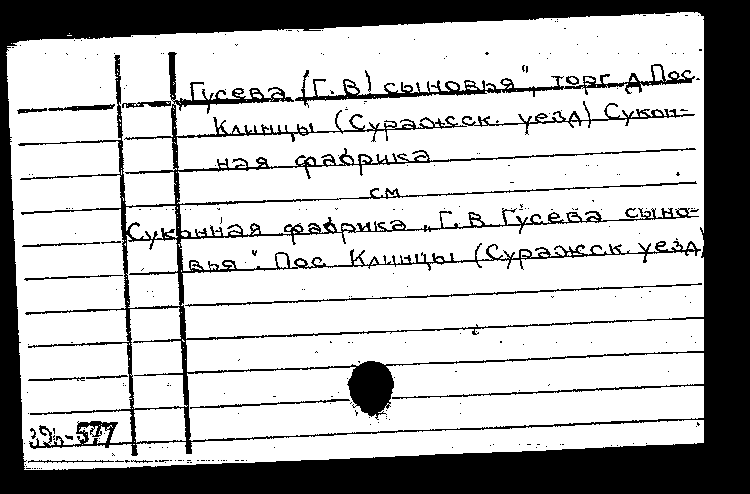 Гусева (Г.В) сыновья", торг. д. Пос.
Клинцы (Суражск. уезд) Сукон=
ная фабрика
см
Суконная фабрика „Г.В Гусева сыно=
вья". Пос Клинцы (Суражск. уезд)
396-577